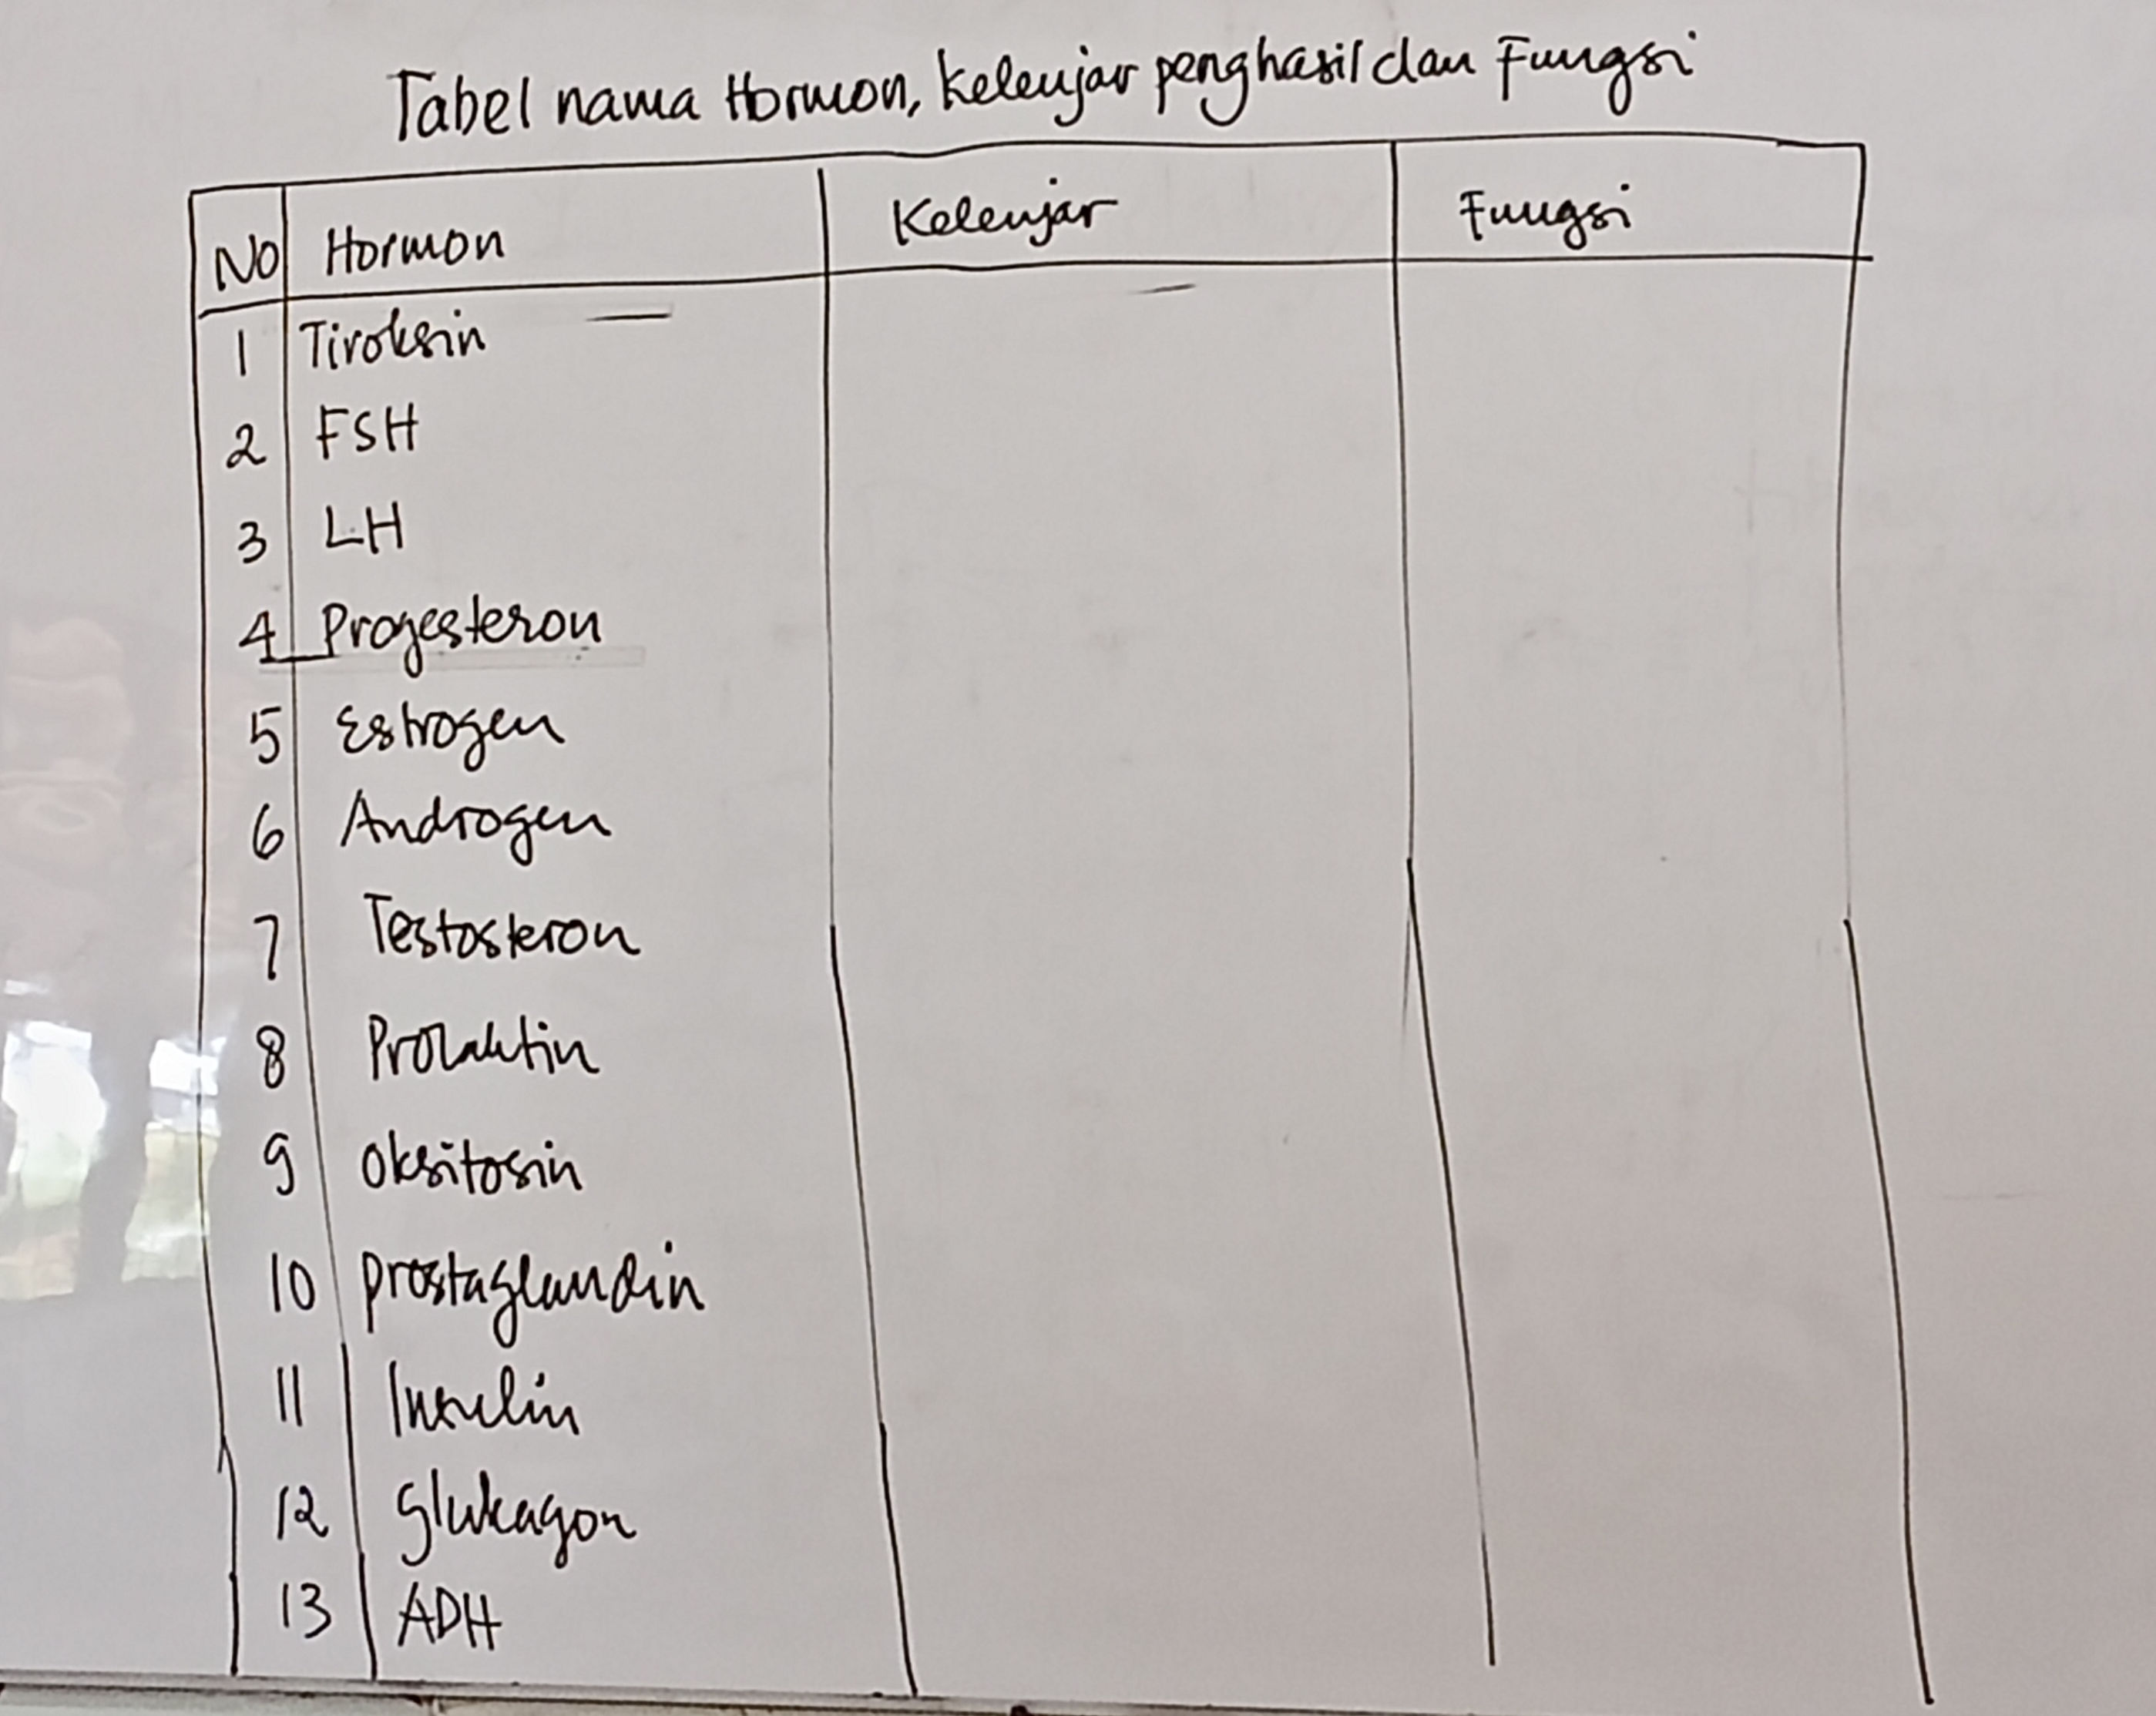 Tabel nama Hormon, Kelenjar penghasil dan Fungsi
No Hormon Kelenjar Fungsi
1 Tiroksin
2 FSH
3 LH
4 Progesteron
5 Estrogen
6 Androgen
7 Testosteron
8 Prolaktin
9 Oksitosin
10 prostaglandin
11 Insulin
12 glukagon
13 ADH